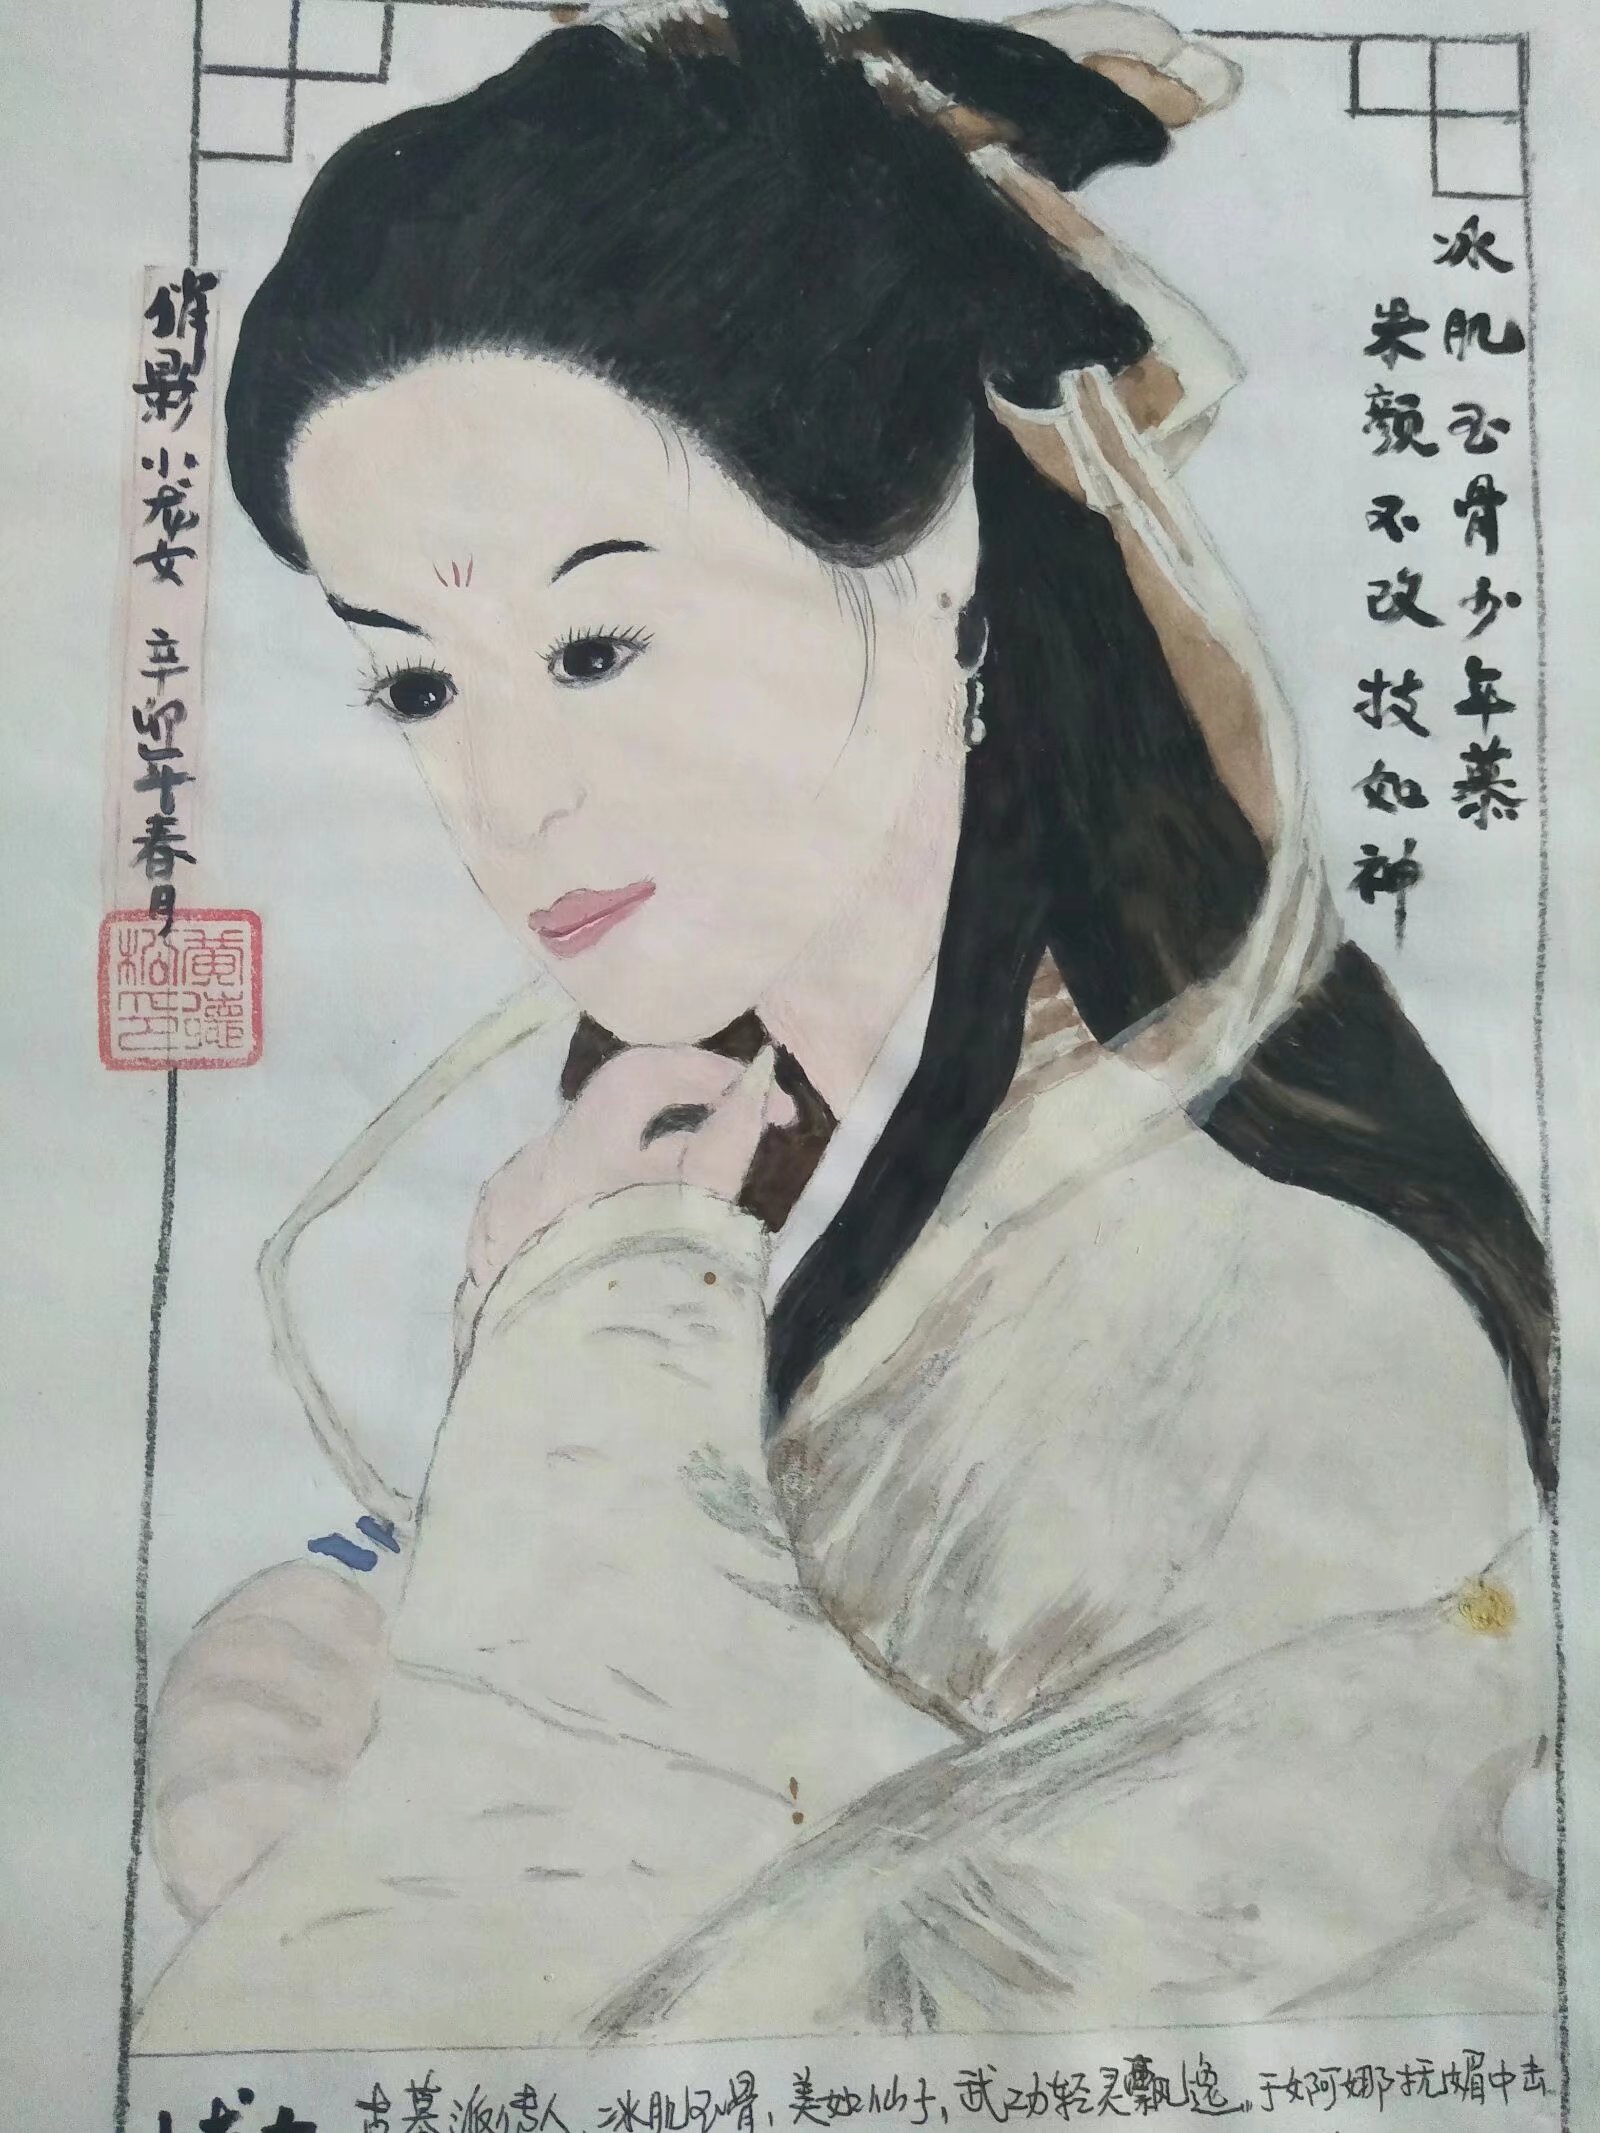 冰肌玉骨少年慕
朱颜不改技如神
俏影小龙女 辛卯年春月
古墓派传人、冰肌玉骨，美如仙子，武功轻灵飘逸，于婀娜抚媚中击